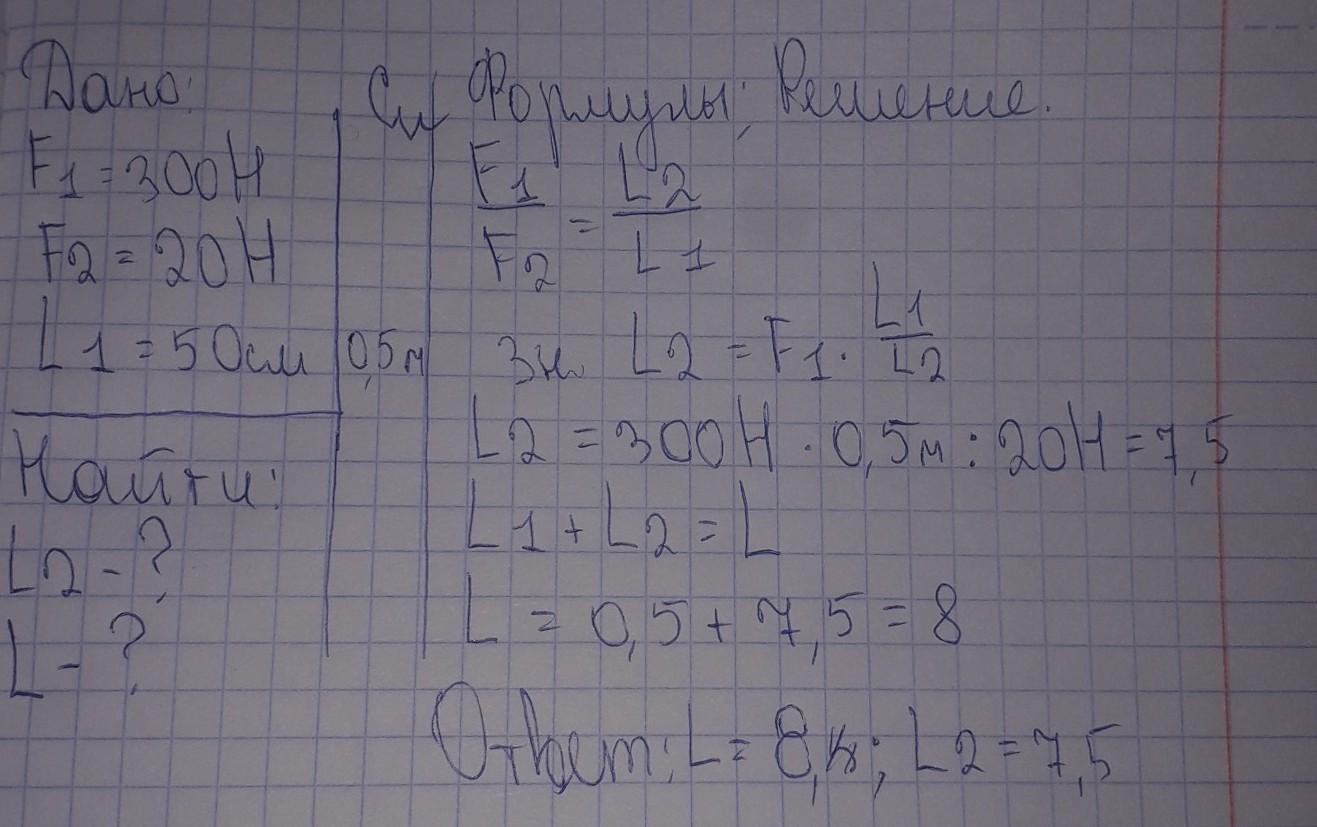 Дано:
F1 = 300Н
F2 = 20Н
L1 = 50см
Найти:
L2 - ?
L - ?
Си
0,5м
Формулы; Решение.
F1/F2 = L2/L1
Зн. L2 = F1 · L1/L2
L2 = 300Н · 0,5м : 20Н = 7,5
L1 + L2 = L
L = 0,5 + 7,5 = 8
Ответ: L = 8, ; L2 = 7,5